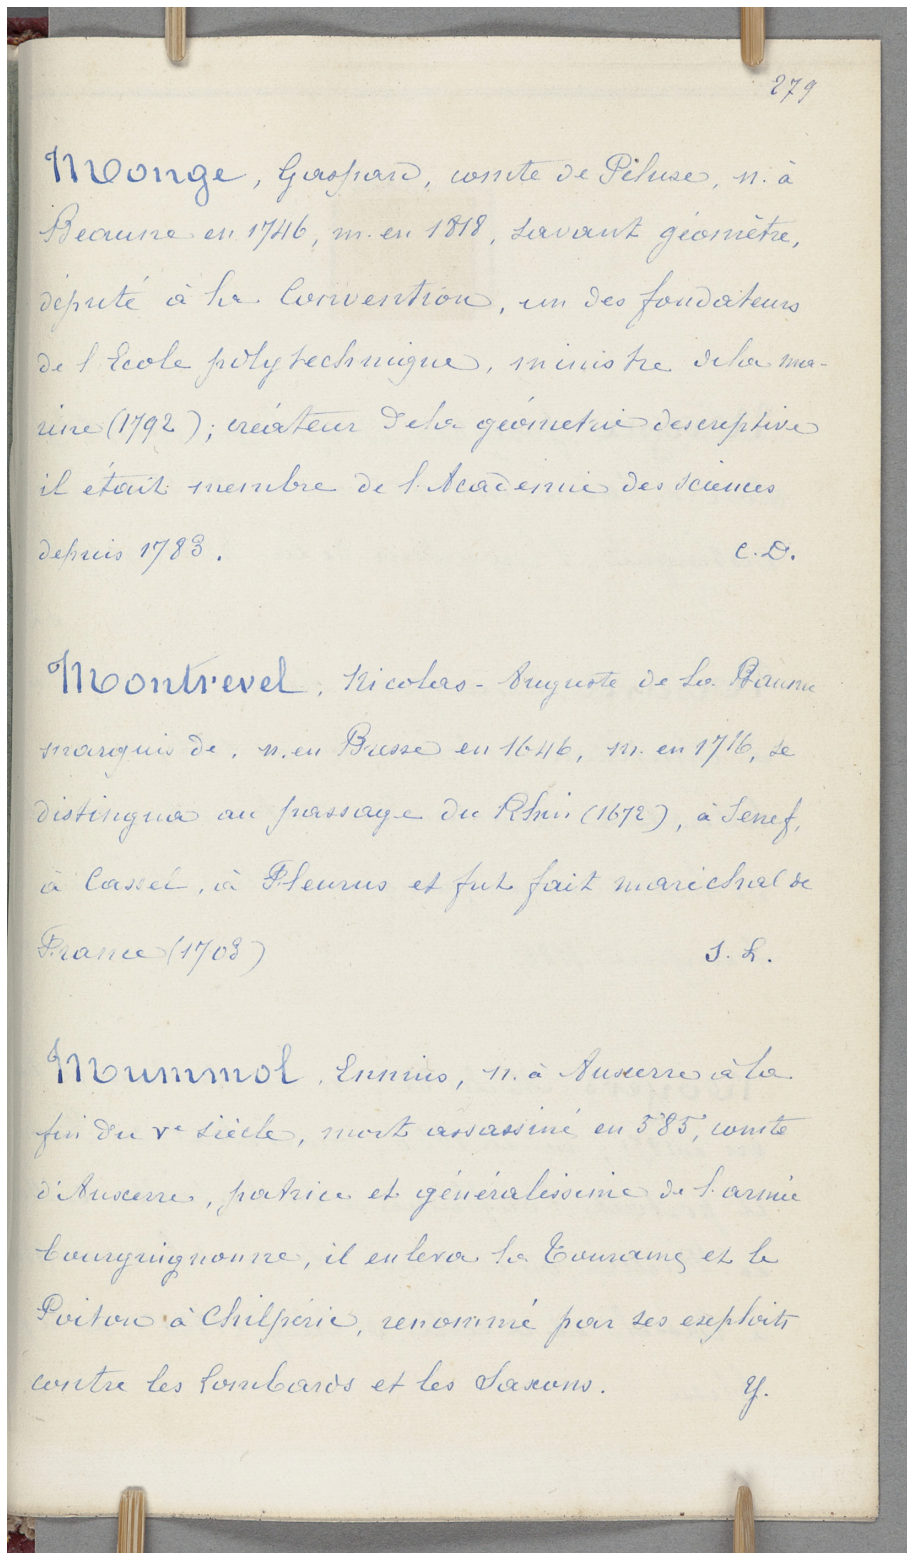 279
Monge, Gaspard, comte de Péluse, n. à
Beaune en 1746, m. en 1818, savant géomètre,
député à la Convention, un des fondateurs
de l'Ecole polytechnique, ministre de la ma-
rine (1792); créateur de la géométrie descriptive
il était membre de l'Académie des sciences
depuis 1783. C. D.
Montrevel, Nicolas-Auguste de La Baume
marquis de, n. en Bresse en 1646, m. en 1716, se
distingua au passage du Rhin (1672), à Senef,
à Cassel, à Fleurus et fut fait maréchal de
France (1703) S. L.
Mummol, Ennius, n. à Auxerre à la
fin du Ve siècle, mort assassiné en 585, comte
d'Auxerre, patrice et généralissime de l'armée
bourguignonne, il enleva la Touraine et le
Poitou à Chilpéric, renommé par ses exploits
contre les Lombards et les Saxons. Y.